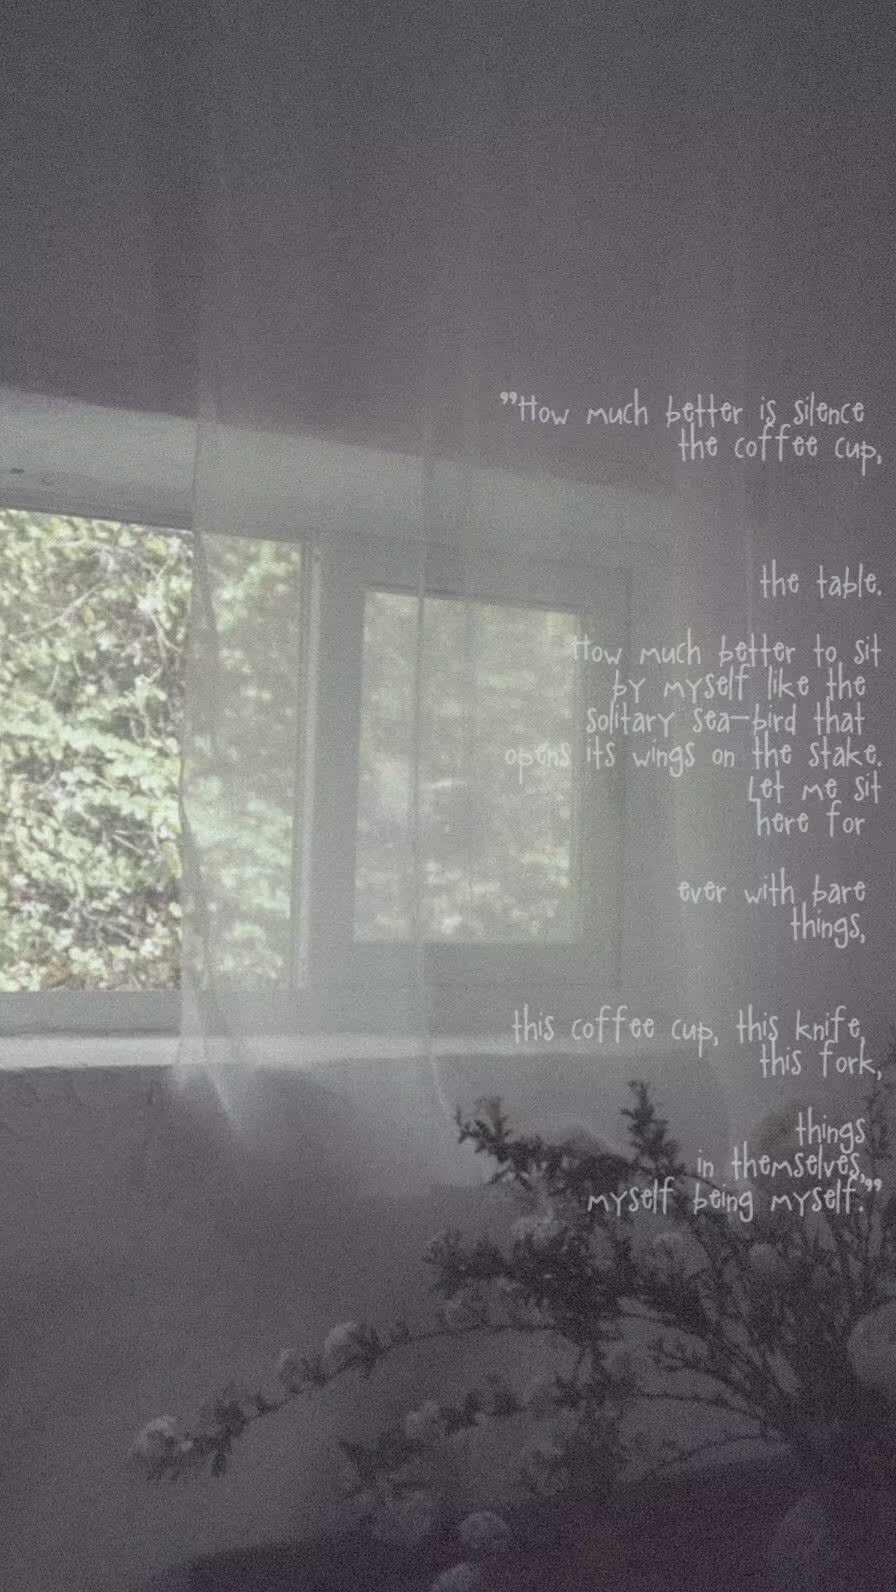 "How much better is silence
the coffee cup,
the table.
How much better to sit
by myself like the
solitary sea-bird that
opens its wings on the stake.
Let me sit
here for
ever with bare
things,
this coffee cup, this knife,
this fork,
things
in themselves,
myself being myself."